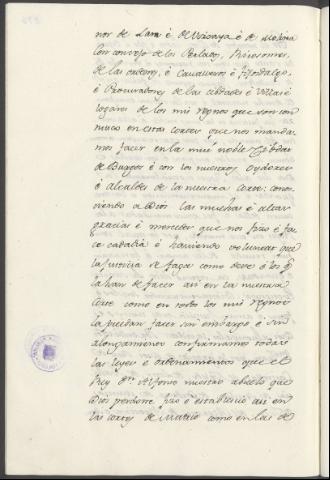 ñor de Lara è de Vizcaya è de Molina
Con consejo de los Perlados, Ricosomes,
de las ordenes, è Cavalleros è Fijosdalgo,
è Procuradores de las cibdades è Villas è
logares de los mis regnos que son con
nusco en estas Cortes que nos manda
mos facer en la mui noble Zibdat
de Burgos è con los nuestros Oydores
è alcaldes de la nuestra Corte: conos
ciendo a Dios las muchas è altas
gracias è mercedes que nos fizo è fa
ce cadaldia è haviendo voluntat que
la justicia se faga como deve è los q̃
la han de facer asi en la nuestra
Corte como en todos los mis regnos
la puedan facer sin embargo è sin
alongamiento confirmamos todas
las leyes è ordenamientos que el
Rey Dn. Alfonso nuestro abuelo que
Dios perdone fizo è establecio asi en
las cortes de Madrid como en las de